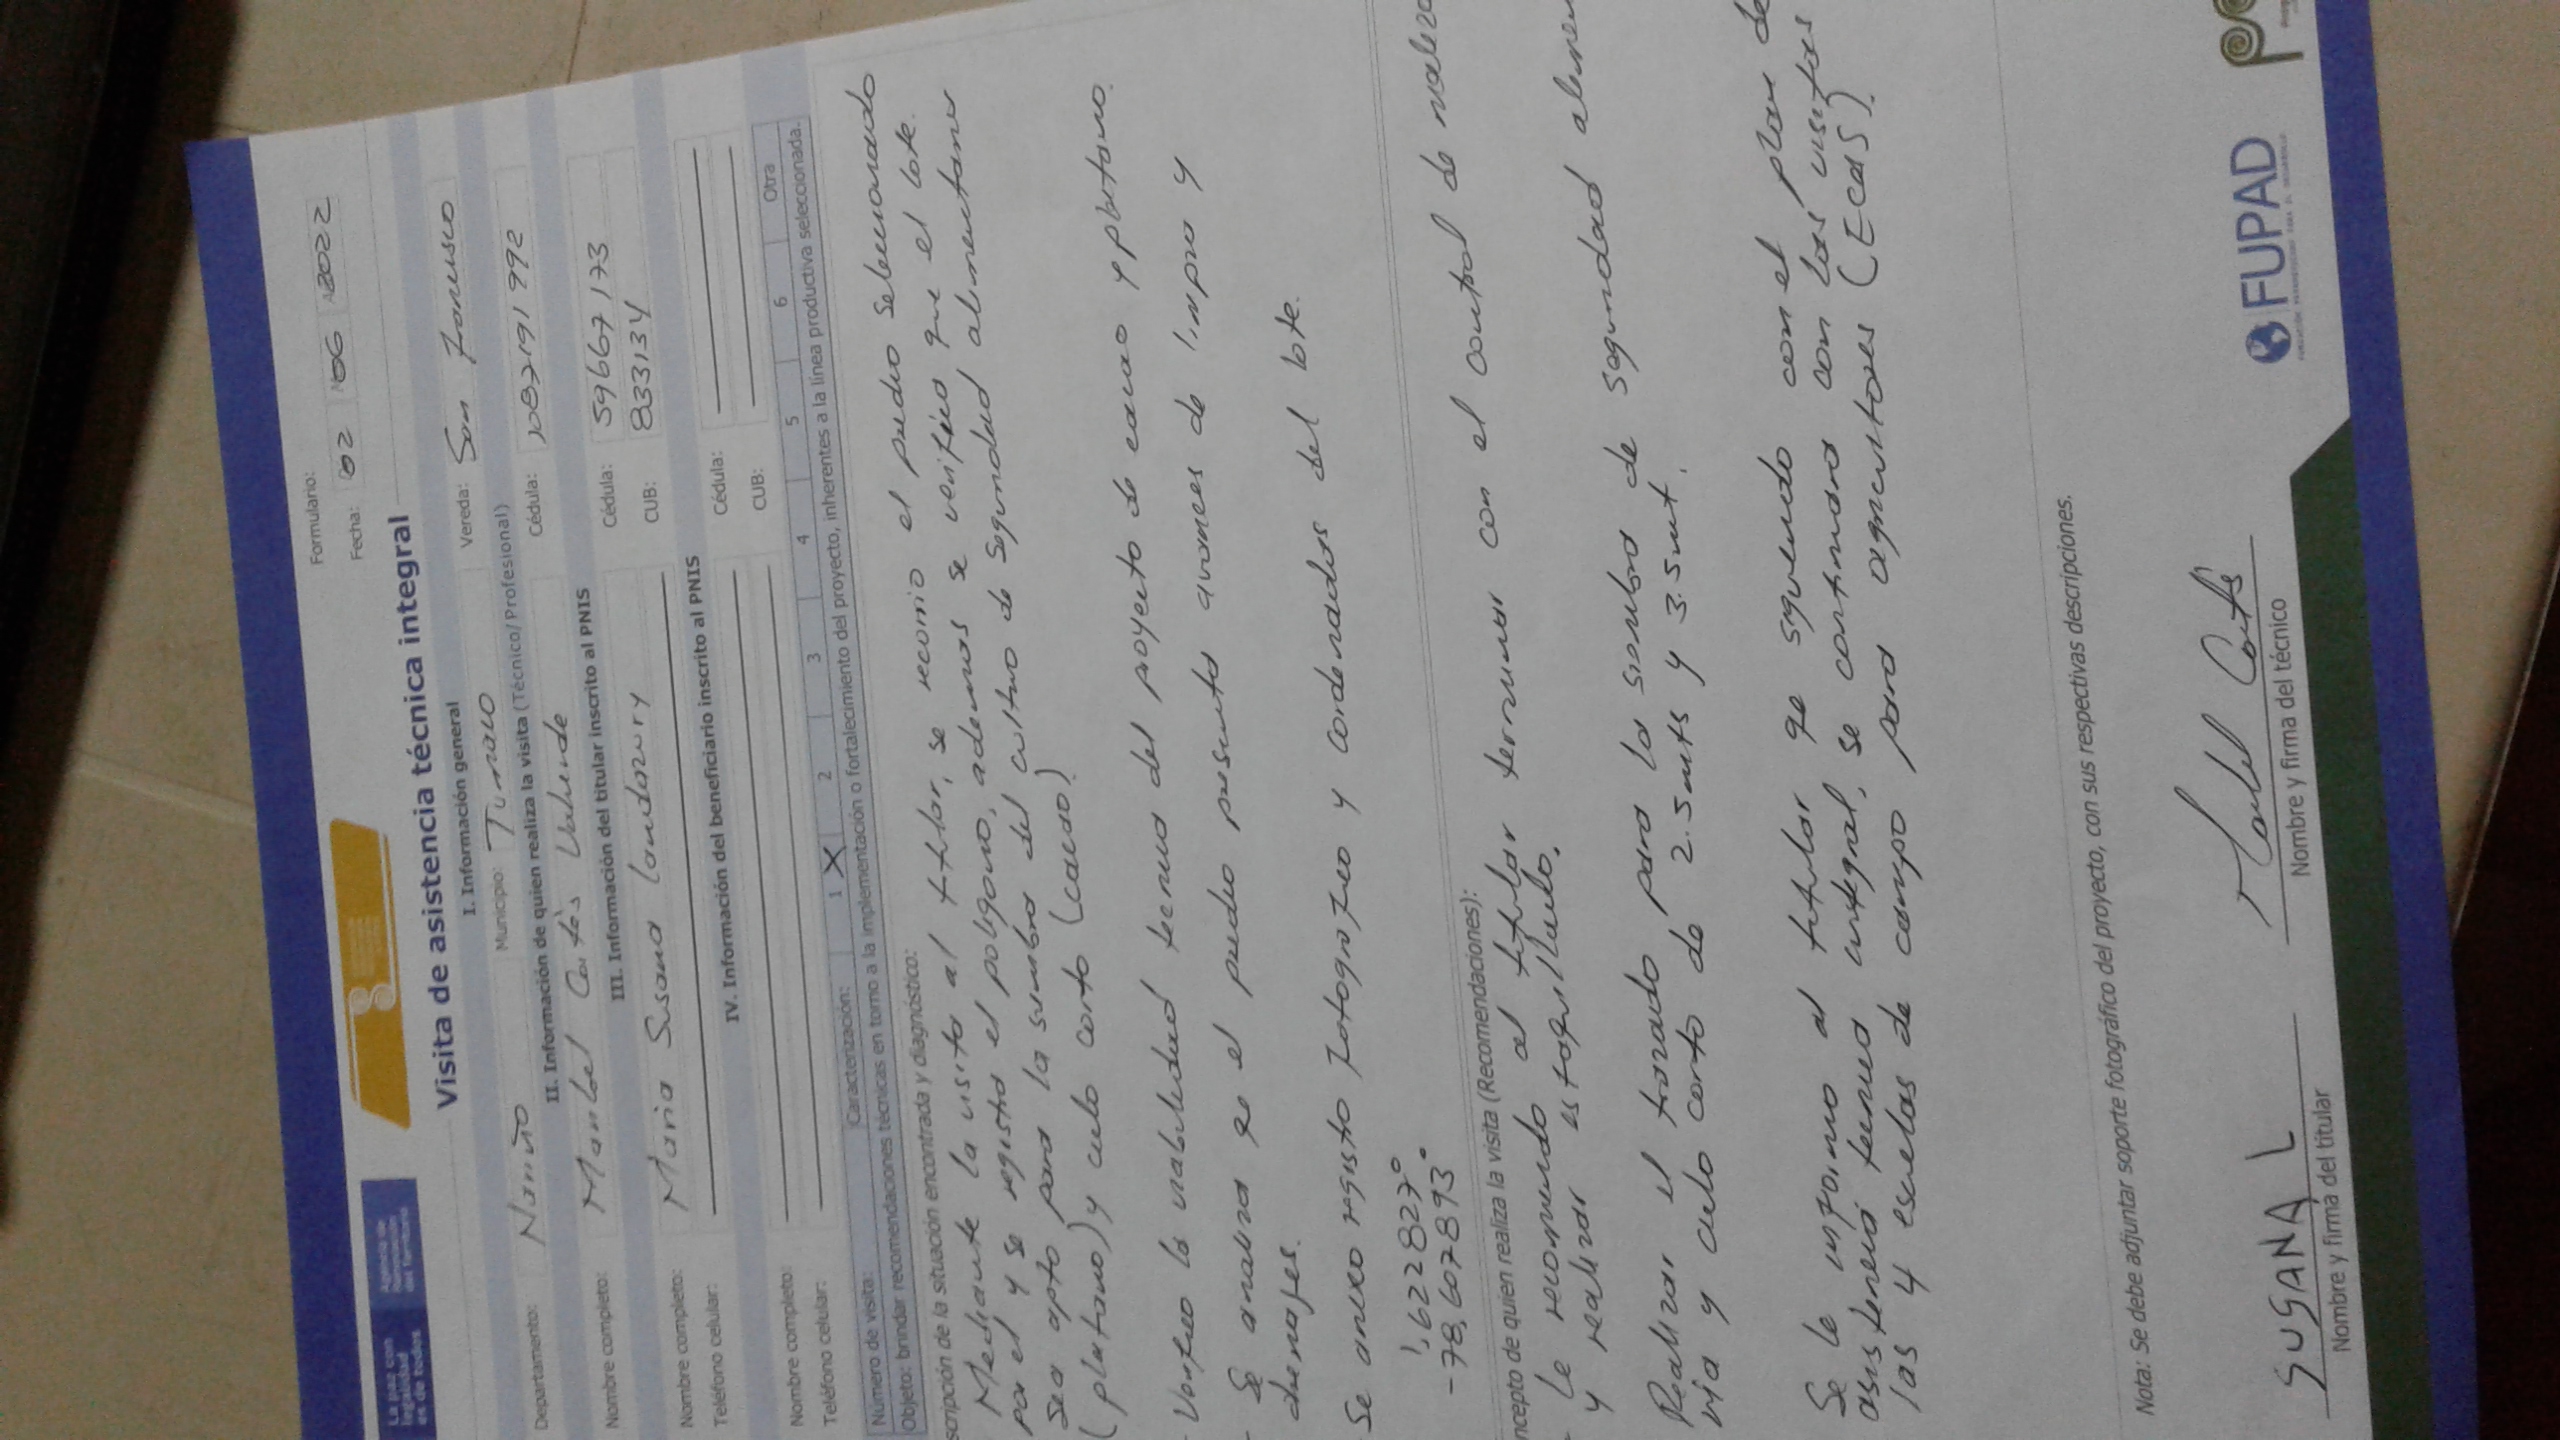 La paz con
legalidad
es de todos
Agencia de
Renovación
del Territorio
Formulario:
Fecha: 02 06 2022
Visita de asistencia técnica integral
I. Información general
Departamento: Nariño Municipio: Tumaco Vereda: San Francisco
II. Información de quien realiza la visita (Técnico/Profesional)
Nombre completo: Maribel Cortés Valverde Cédula: 1087191992
III. Información del titular inscrito al PNIS
Nombre completo: Maria Susana Landazury Cédula: 59667173
Teléfono celular: CUB: 833134
IV. Información del beneficiario inscrito al PNIS
Nombre completo: Cédula:
Teléfono celular: CUB:
Número de visita: Caracterización: 1 X 2 3 4 5 6 Otra
Objeto: brindar recomendaciones técnicas en torno a la implementación o fortalecimiento del proyecto, inherentes a la línea productiva seleccionada.
scripción de la situación encontrada y diagnóstico:
Mediante la visita al titular, se recorrio el predio seleccionado
por el y se registra el poligono, ademas se verifico que el lote
sea apto para la siembra del cultivo de seguridad alimentaria
(platano) y ciclo corto (cacao).
- Verifico la viabilidad tecnica del proyecto de cacao y platano.
- Se analiza qe el predio presenta avances de limpia y
drenajes.
Se anexo registro fotografico y cordenadas del lote.
1,6228827°
-78,6078893°
ncepto de quien realiza la visita (Recomendaciones):
- Le recomiendo al titular terminar con el control de maleza
y realizar estaquillado.
Realizar el trazado para la siembra de seguridad alimen
ria y ciclo corto de 2.5 mts y 3.5 mt.
Se le informo al titular qe siguiendo con el plan de
asistencia tecnica integral, se continuara con las visitas
las 4 escuelas de campo para agricultores (ECAS).
Nota: Se debe adjuntar soporte fotográfico del proyecto, con sus respectivas descripciones.
SUSANA L
Nombre y firma del titular
Maribel Cortés
Nombre y firma del técnico
FUPAD